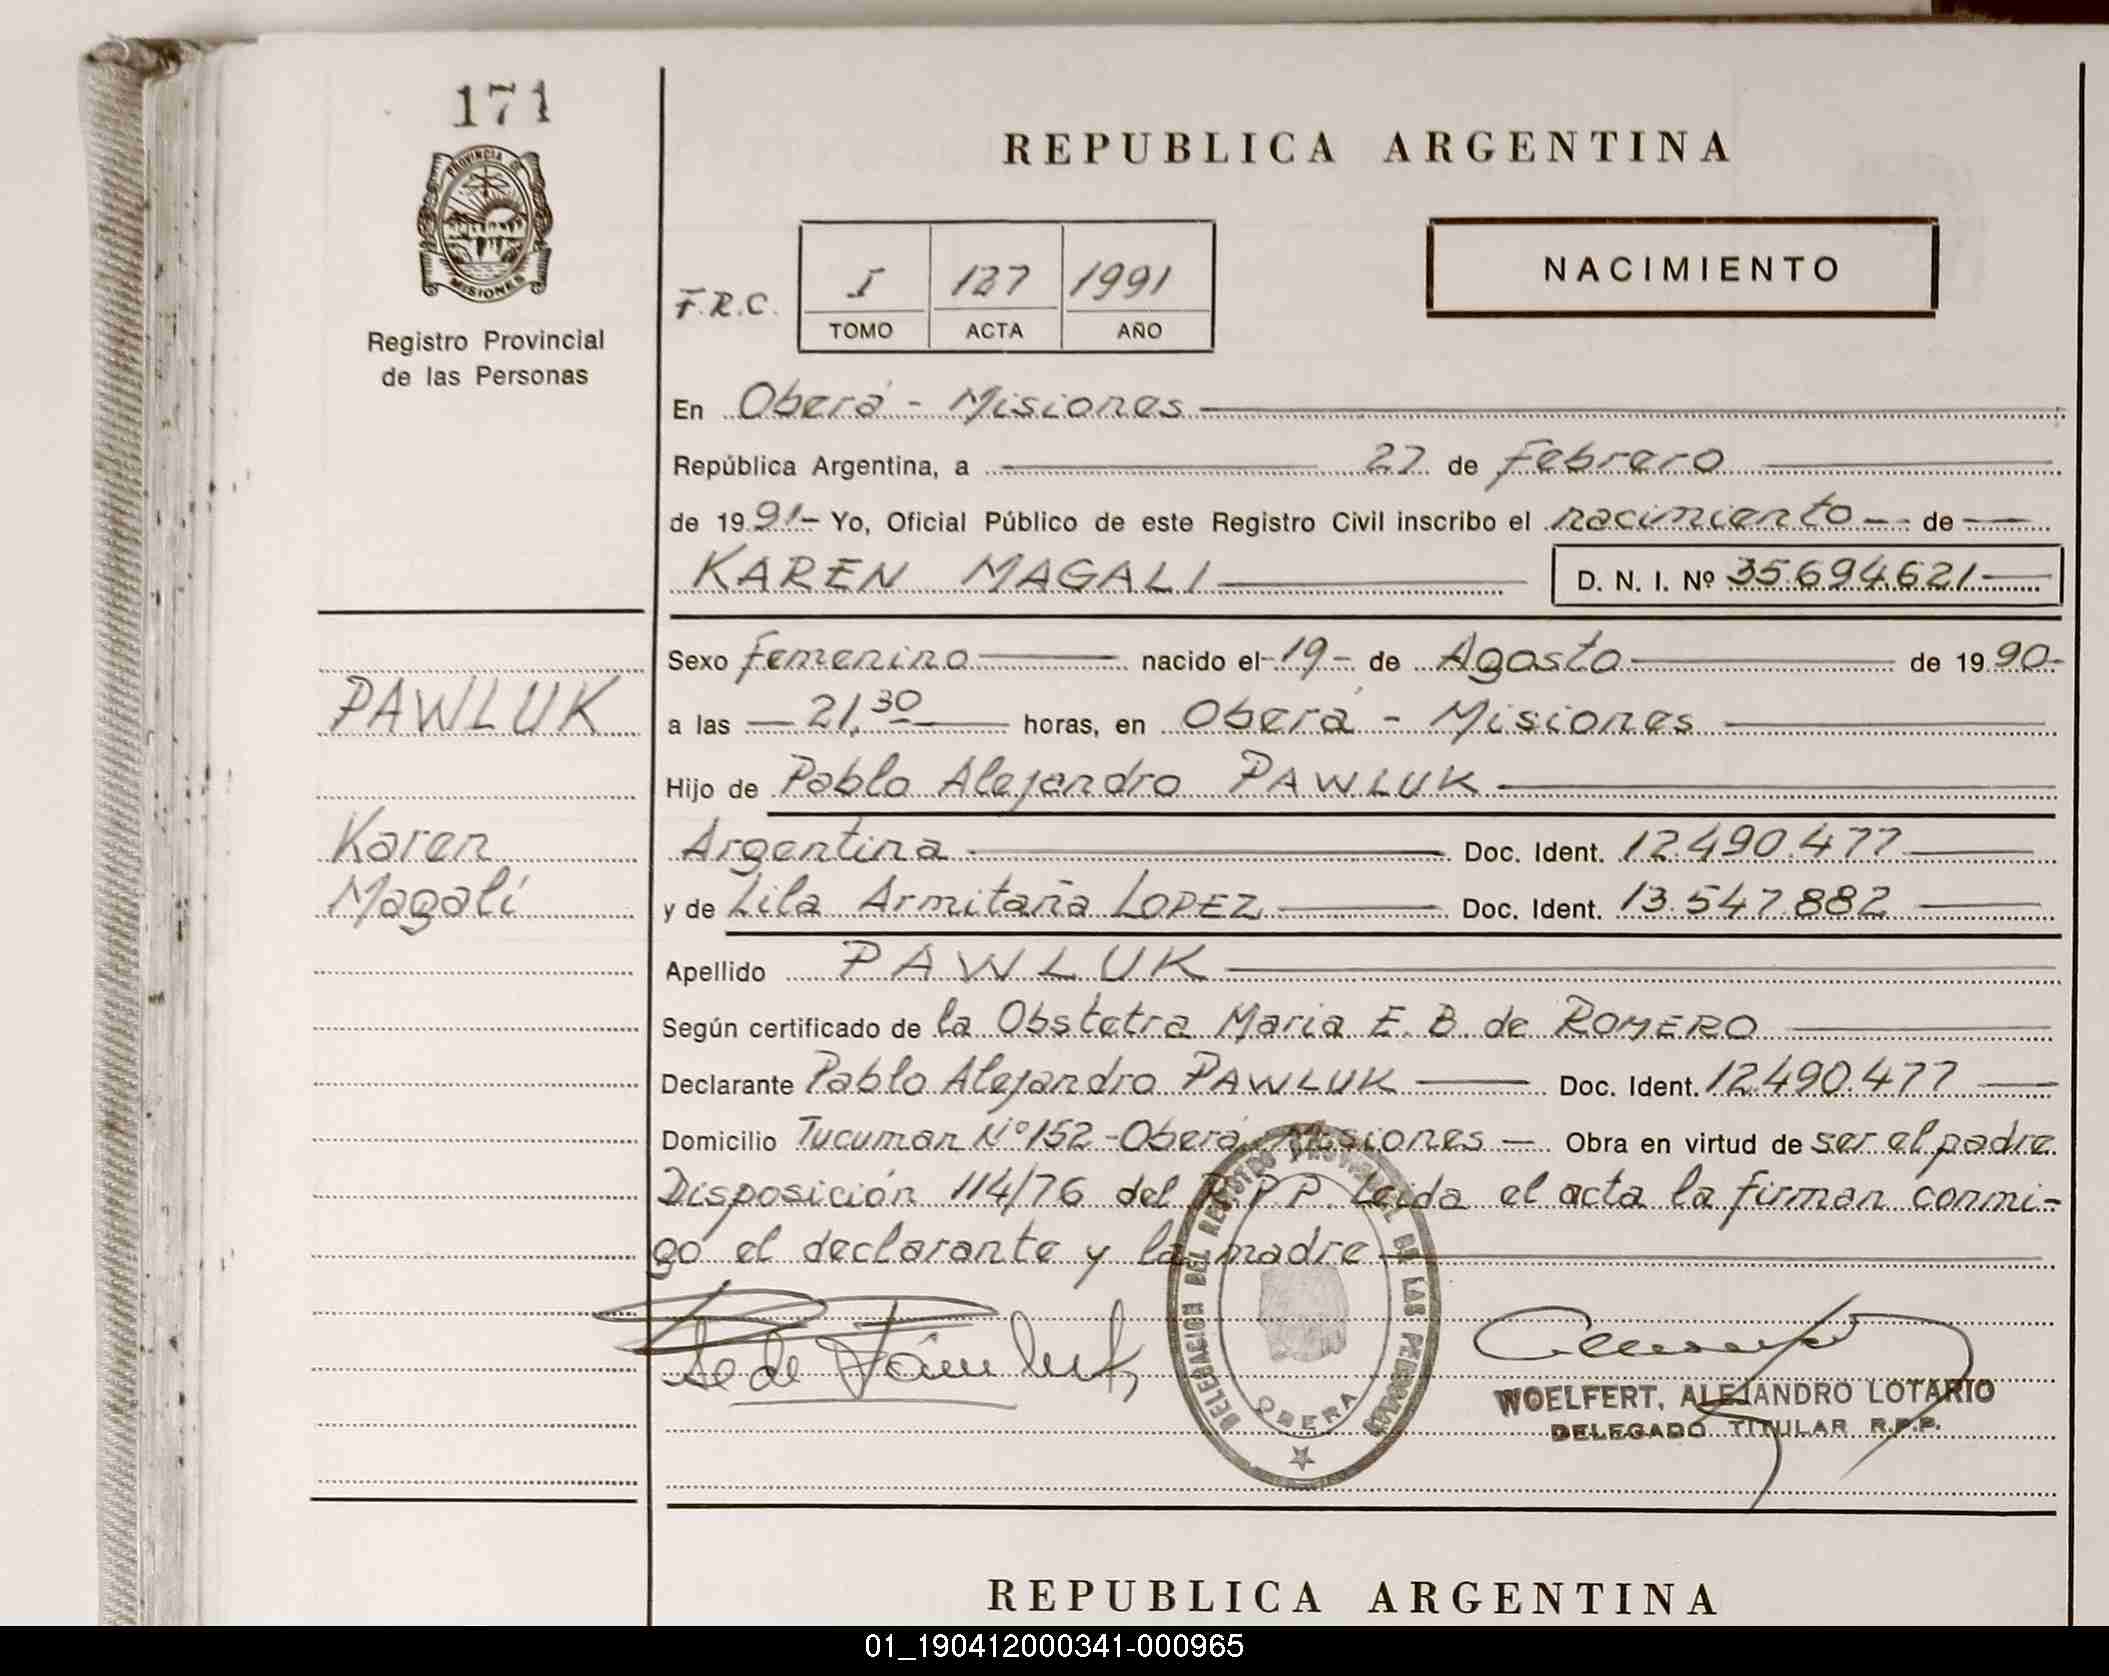 171
PROVINCIA DE
MISIONES
Registro Provincial
de las Personas
REPUBLICA ARGENTINA
F.R.C.
I 137 1991
TOMO ACTA AÑO
NACIMIENTO
En Oberá - Misiones
República Argentina, a 27 de Febrero
de 1991- Yo, Oficial Público de este Registro Civil inscribo el nacimiento de
KAREN MAGALI D. N. I. Nº 35.694.621
Sexo Femenino nacido el 19 de Agosto de 1990
PAWLUK
a las 21,30 horas, en Oberá - Misiones
Hijo de Pablo Alejandro PAWLUK
Karen
Argentina Doc. Ident. 12.490.477
Magalí
y de Lila Armitaña LOPEZ Doc. Ident. 13.547.882
Apellido PAWLUK
Según certificado de la Obstetra Maria E. B. de ROMERO
Declarante Pablo Alejandro PAWLUK Doc. Ident. 12.490.477
Domicilio Tucuman Nº 152 - Oberá - Misiones Obra en virtud de ser el padre
Disposición 114/76 del R.P.P. Leida el acta la firman conmi-
go el declarante y la madre
DELEGACION DEL REGISTRO PROVINCIAL DE LAS PERSONAS
OBERA
WOELFERT, ALEJANDRO LOTARIO
DELEGADO TITULAR R.P.P.
REPUBLICA ARGENTINA
01_190412000341-000965